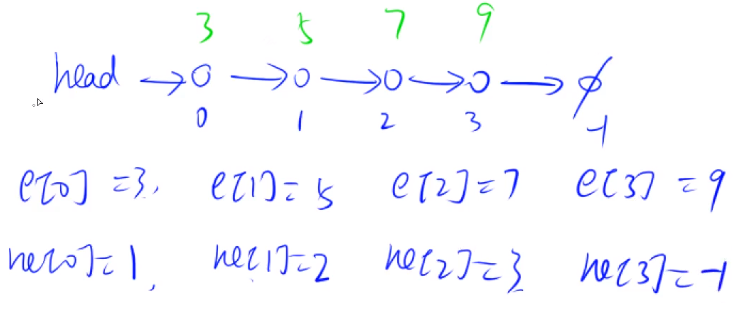 3 5 7 9
head → o → o → o → o → ∅
0 1 2 3 -1
e[0] =3, e[1]=5 e[2]=7 e[3] =9
ne[0]=1, ne[1]=2 ne[2]=3 ne[3]=-1